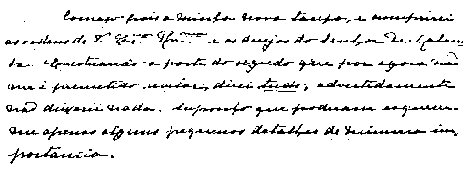 Começo pois a minha nova tarefa, e cumprirei
as ordens de V. Ex.ma Rv.ma e os desejos do Senhor De. Cale-
da. Exceptuando a parte do segredo que por agora não
me é permettido revelar, direi tudo; advertidamente
não deixarei nada. Supposto que poderiam esquecer-
me apenas alguns pequenos detalhes de minima im-
portancia.